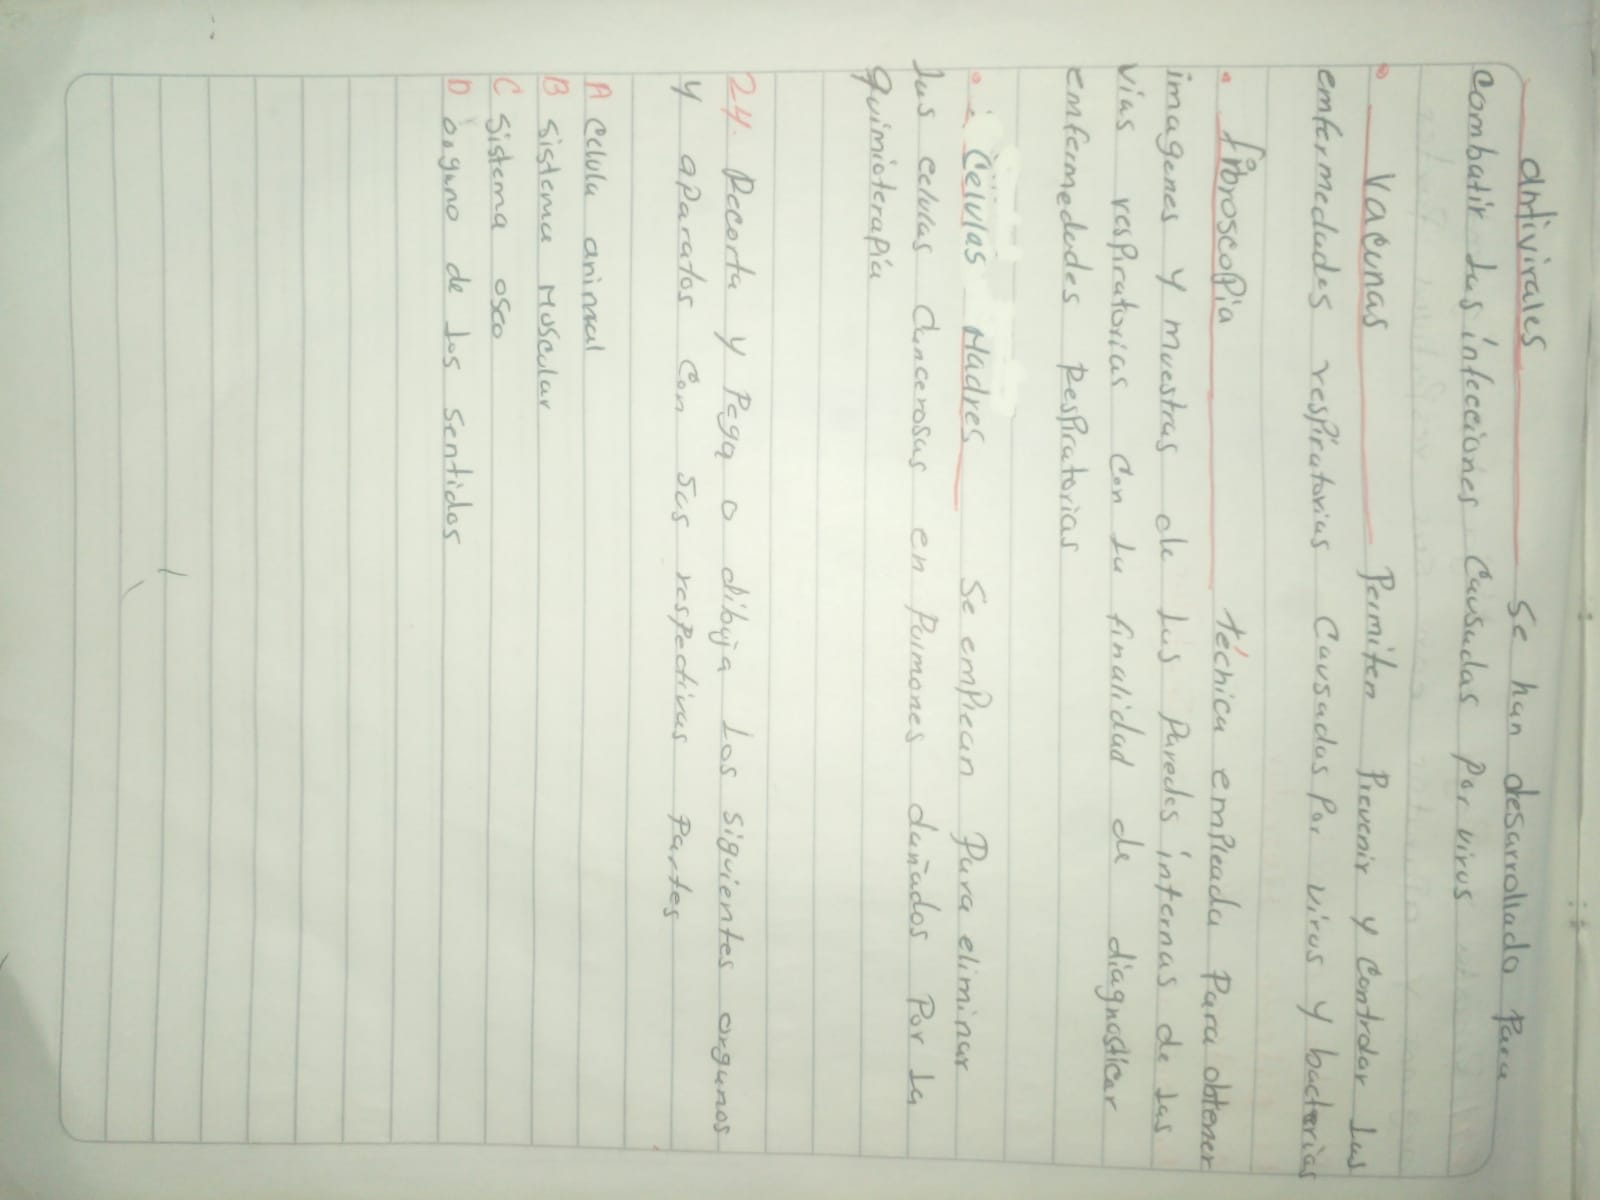 antivirales Se han desarrollado para
combatir las infecciones causadas por virus
• Vacunas Permiten Prevenir y controlar las
enfermedades respiratorias causadas por virus y bacterias
• fibroscopia técnica empleada para obtener
imagenes y muestras de las paredes internas de las
vías respiratorias con la finalidad de diagnosticar
enfermedades respiratorias
• Celulas Madres Se emplean para eliminar
las celulas cancerosas en pulmones dañados por la
quimioterapia
24. Recorta y Pega o dibuja los siguientes organos
y aparatos con sus respectivas partes
A Celula animal
B sistema Muscular
C sistema oseo
D organo de los sentidos